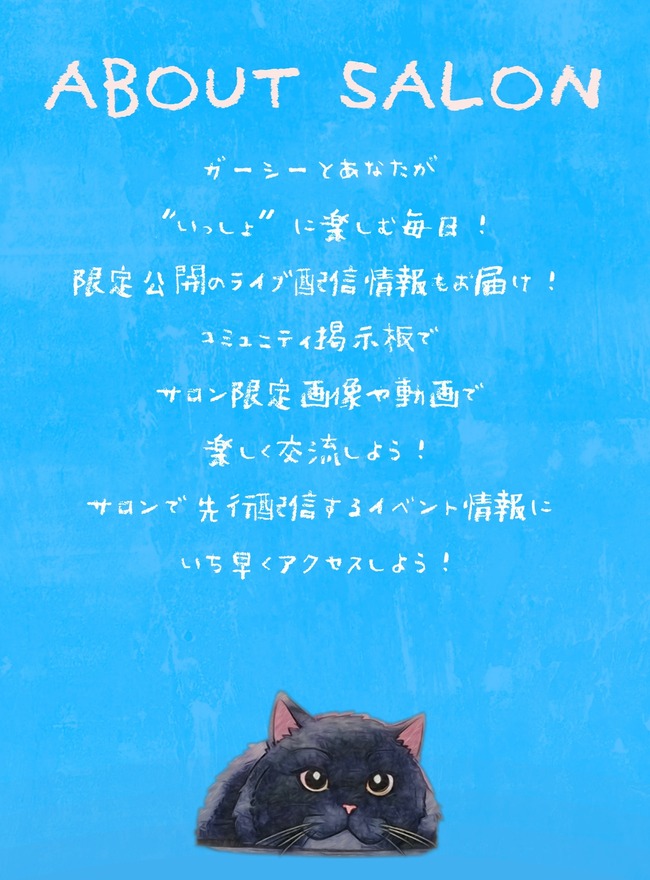 ABOUT SALON
ガーシーとあなたが
"いっしょ" に楽しむ毎日！
限定公開のライブ配信情報もお届け！
コミュニティ掲示板で
サロン限定画像や動画で
楽しく交流しよう！
サロンで先行配信するイベント情報に
いち早くアクセスしよう！